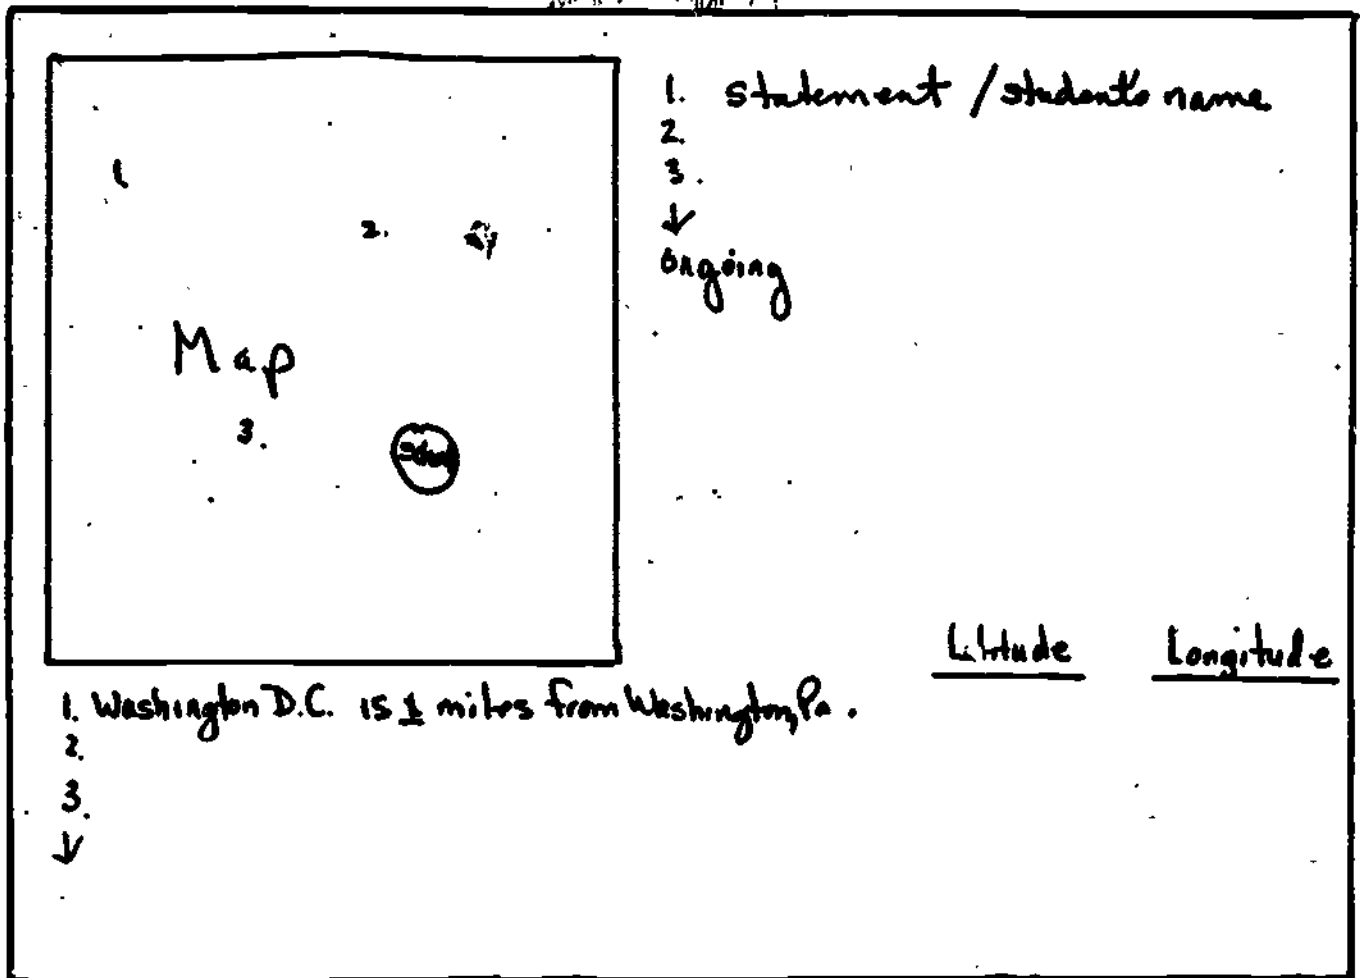 1. statement / student's name
2.
3.
↓
ongoing
1
2.
Map
3.
Latitude Longitude
1. Washington D.C. is miles from Washington, Pa.
2.
3.
↓